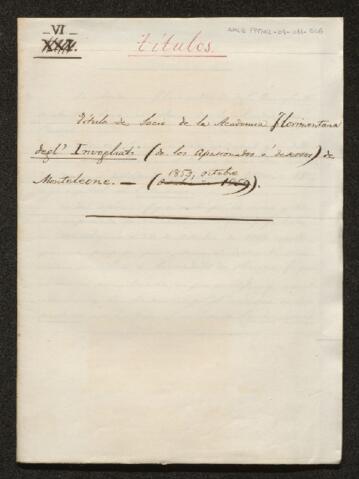 VI
XXI.
Títulos.
Título de Socio de la Academia Florimontana
degl' Invogliati (de los apasionados ó deseosos) de
Monteleone. — (1853, octubre).